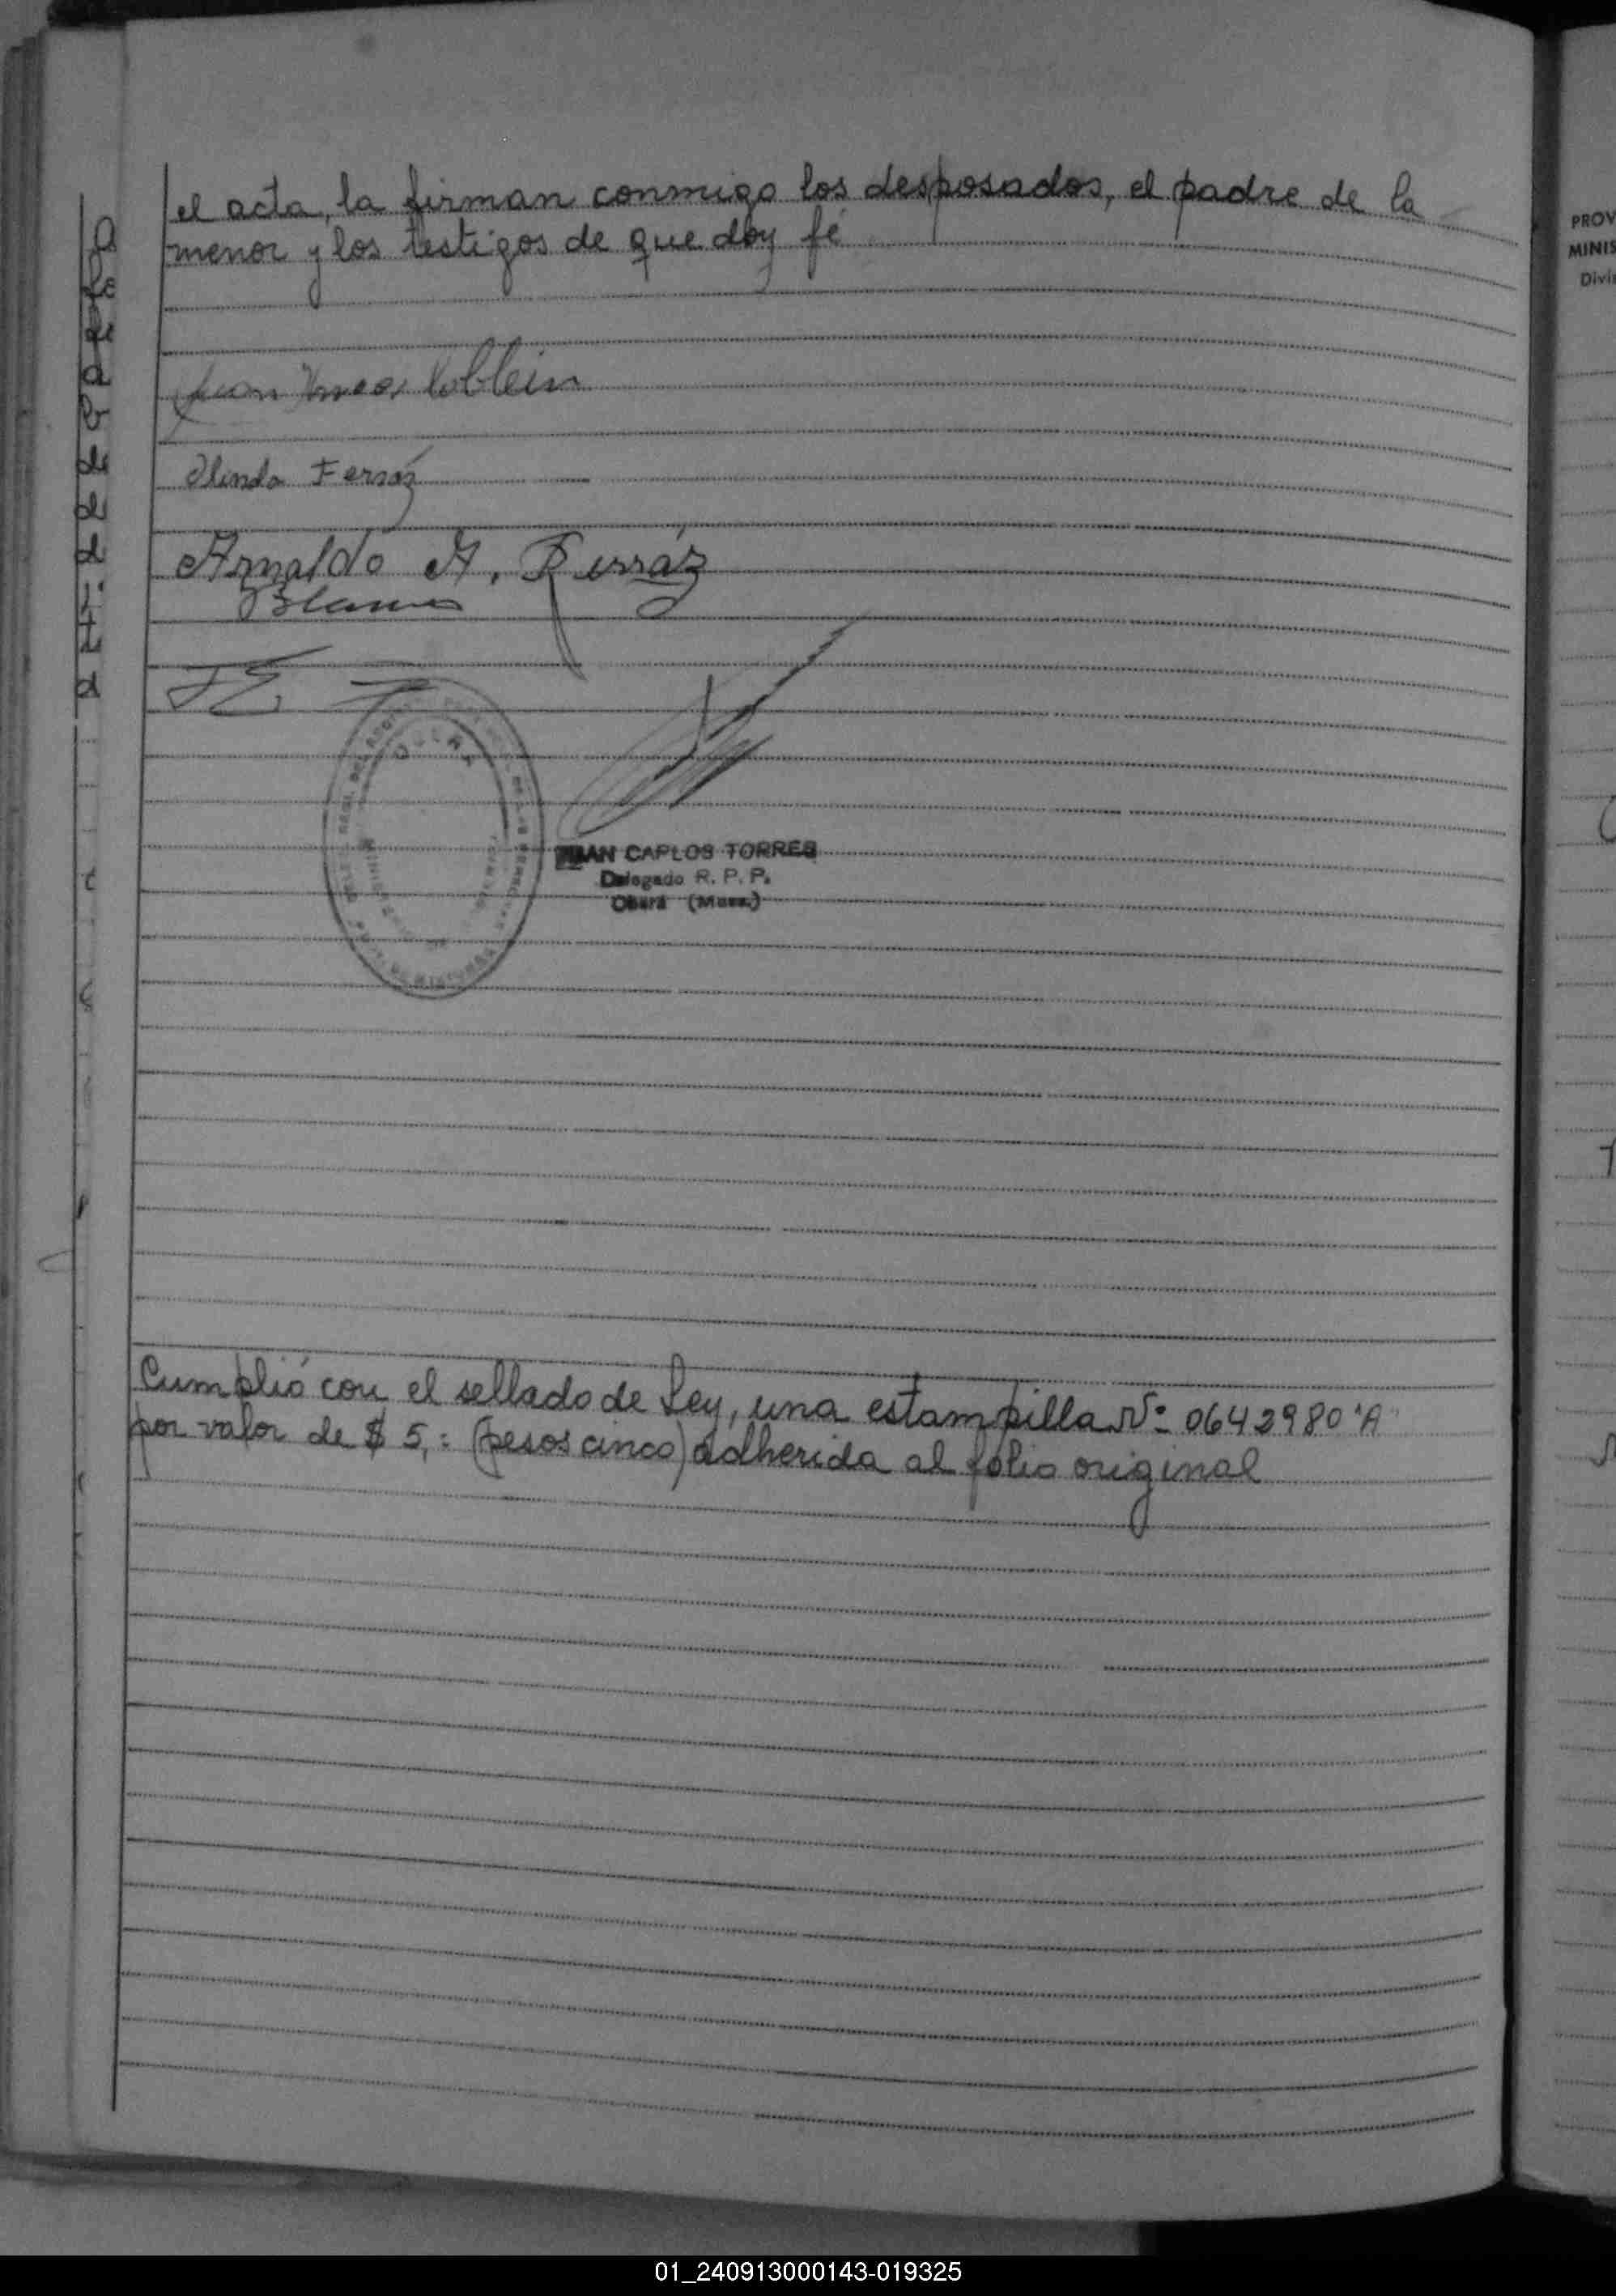 el acta, la firman conmigo los desposados, el padre de la
menor y los testigos de que doy fé
Juan
Olinda Ferráz
Arnaldo A. Ferráz
JUAN CARLOS TORRES
Delegado R. P. P.
Oberá (Mnes.)
Cumplió con el sellado de Ley, una estampilla Nº 0642980 "A"
por valor de $ 5,= (pesos cinco) adherida al folio original
PROV
MINIS
Divi
01_240913000143-019325